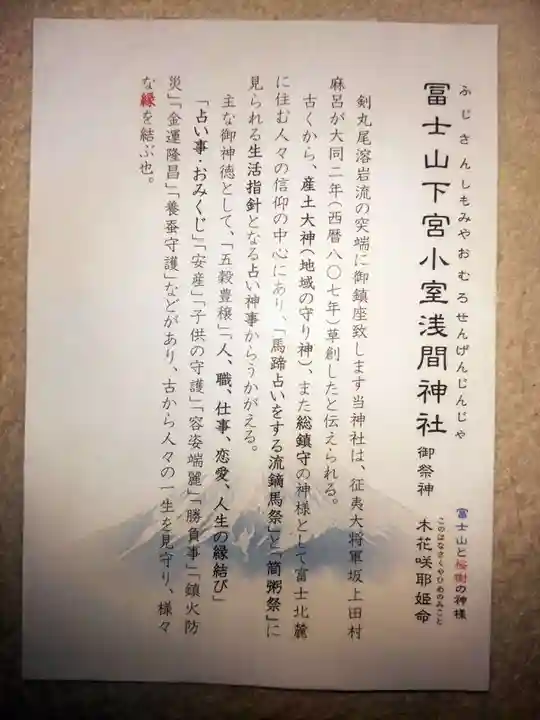 ふじさんしもみやおむろせんげんじんじゃ
冨士山下宮小室浅間神社 御祭神
富士山と桜樹の神様
このはなさくやひめのみこと
木花咲耶姫命
剣丸尾溶岩流の突端に御鎮座致します当神社は、征夷大将軍坂上田村
麻呂が大同二年(西暦八〇七年)草創したと伝えられる。
古くから、産土大神(地域の守り神)、また総鎮守の神様として富士北麓
に住む人々の信仰の中心にあり、「馬蹄占いをする流鏑馬祭」と「筒粥祭」に
見られる生活指針となる占い神事からうかがえる。
主な御神徳として、「五穀豊穣」「人、職、仕事、恋愛、人生の縁結び」
「占い事・おみくじ」「安産」「子供の守護」「容姿端麗」「勝負事」「鎮火防
災」「金運隆昌」「養蚕守護」などがあり、古から人々の一生を見守り、様々
な縁を結ぶ也。